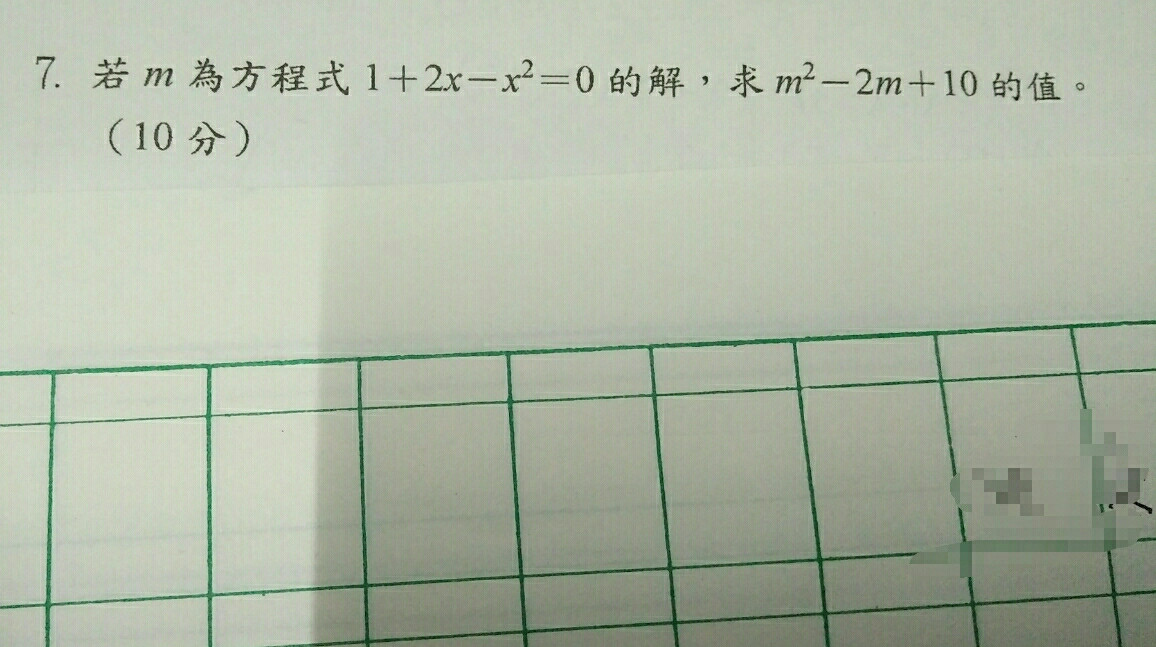 7. 若 m 為方程式 1+2x−x²=0 的解，求 m²−2m+10 的值。
（10 分）